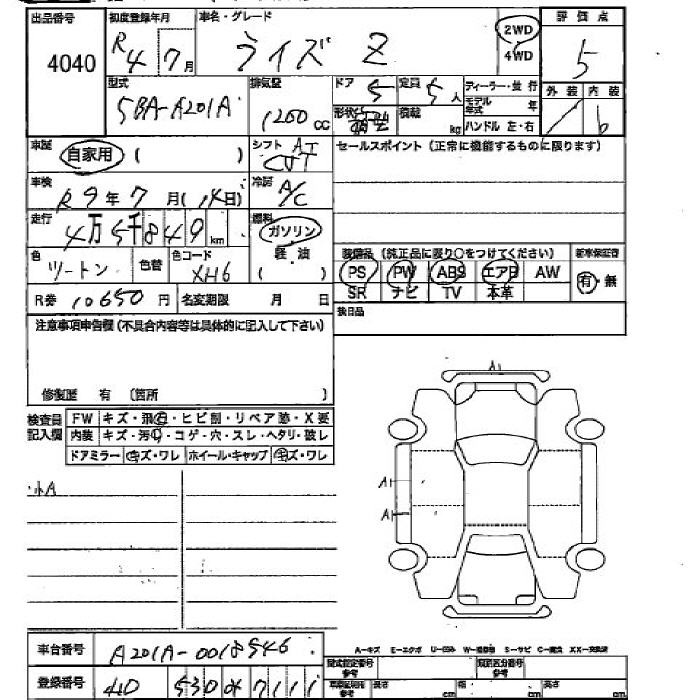 出品番号 初度登録年月 車名・グレード 評価点
4040 R4 7月 ライズ Z 2WD 4WD 5
型式 排気量 ドア 5 定員 5人 ディーラー・並行 外装 内装
5BA-A201A 1200cc 形状 積載 kg モデル年式 年 ハンドル 左・右 b
車歴 自家用 ( ) シフト AT CVT セールスポイント(正常に機能するものに限ります)
車検 R9年7月(14日) 冷房 A/C
走行 4万5千849km 燃料 ガソリン 軽油 ( )
装備品 (純正品に限り○をつけてください) 新車保証書
色 ツートン 色替 色コード XH6 PS PW ABS エアB AW 有・無
SR ナビ TV 本革
R券 10650円 名変期限 月 日 後日品
注意事項申告欄(不具合内容等は具体的に記入して下さい)
修復歴 有 〔箇所 〕
検査員記入欄 FW キズ・飛石・ヒビ割・リペア跡・X要
内装 キズ・汚れ・コゲ・穴・スレ・ヘタリ・破レ
ドアミラー キズ・ワレ ホイール・キャップ キズ・ワレ
A1
・小A
A1
A1
車台番号 A201A-0018546
A-キズ E-エクボ U-凹み W-補修跡 S-サビ C-腐食 XX-交換済
型式指定番号 参考 類別区分番号 参考
登録番号 40 530 は 7111 参考 長さ cm 幅 cm 高さ cm